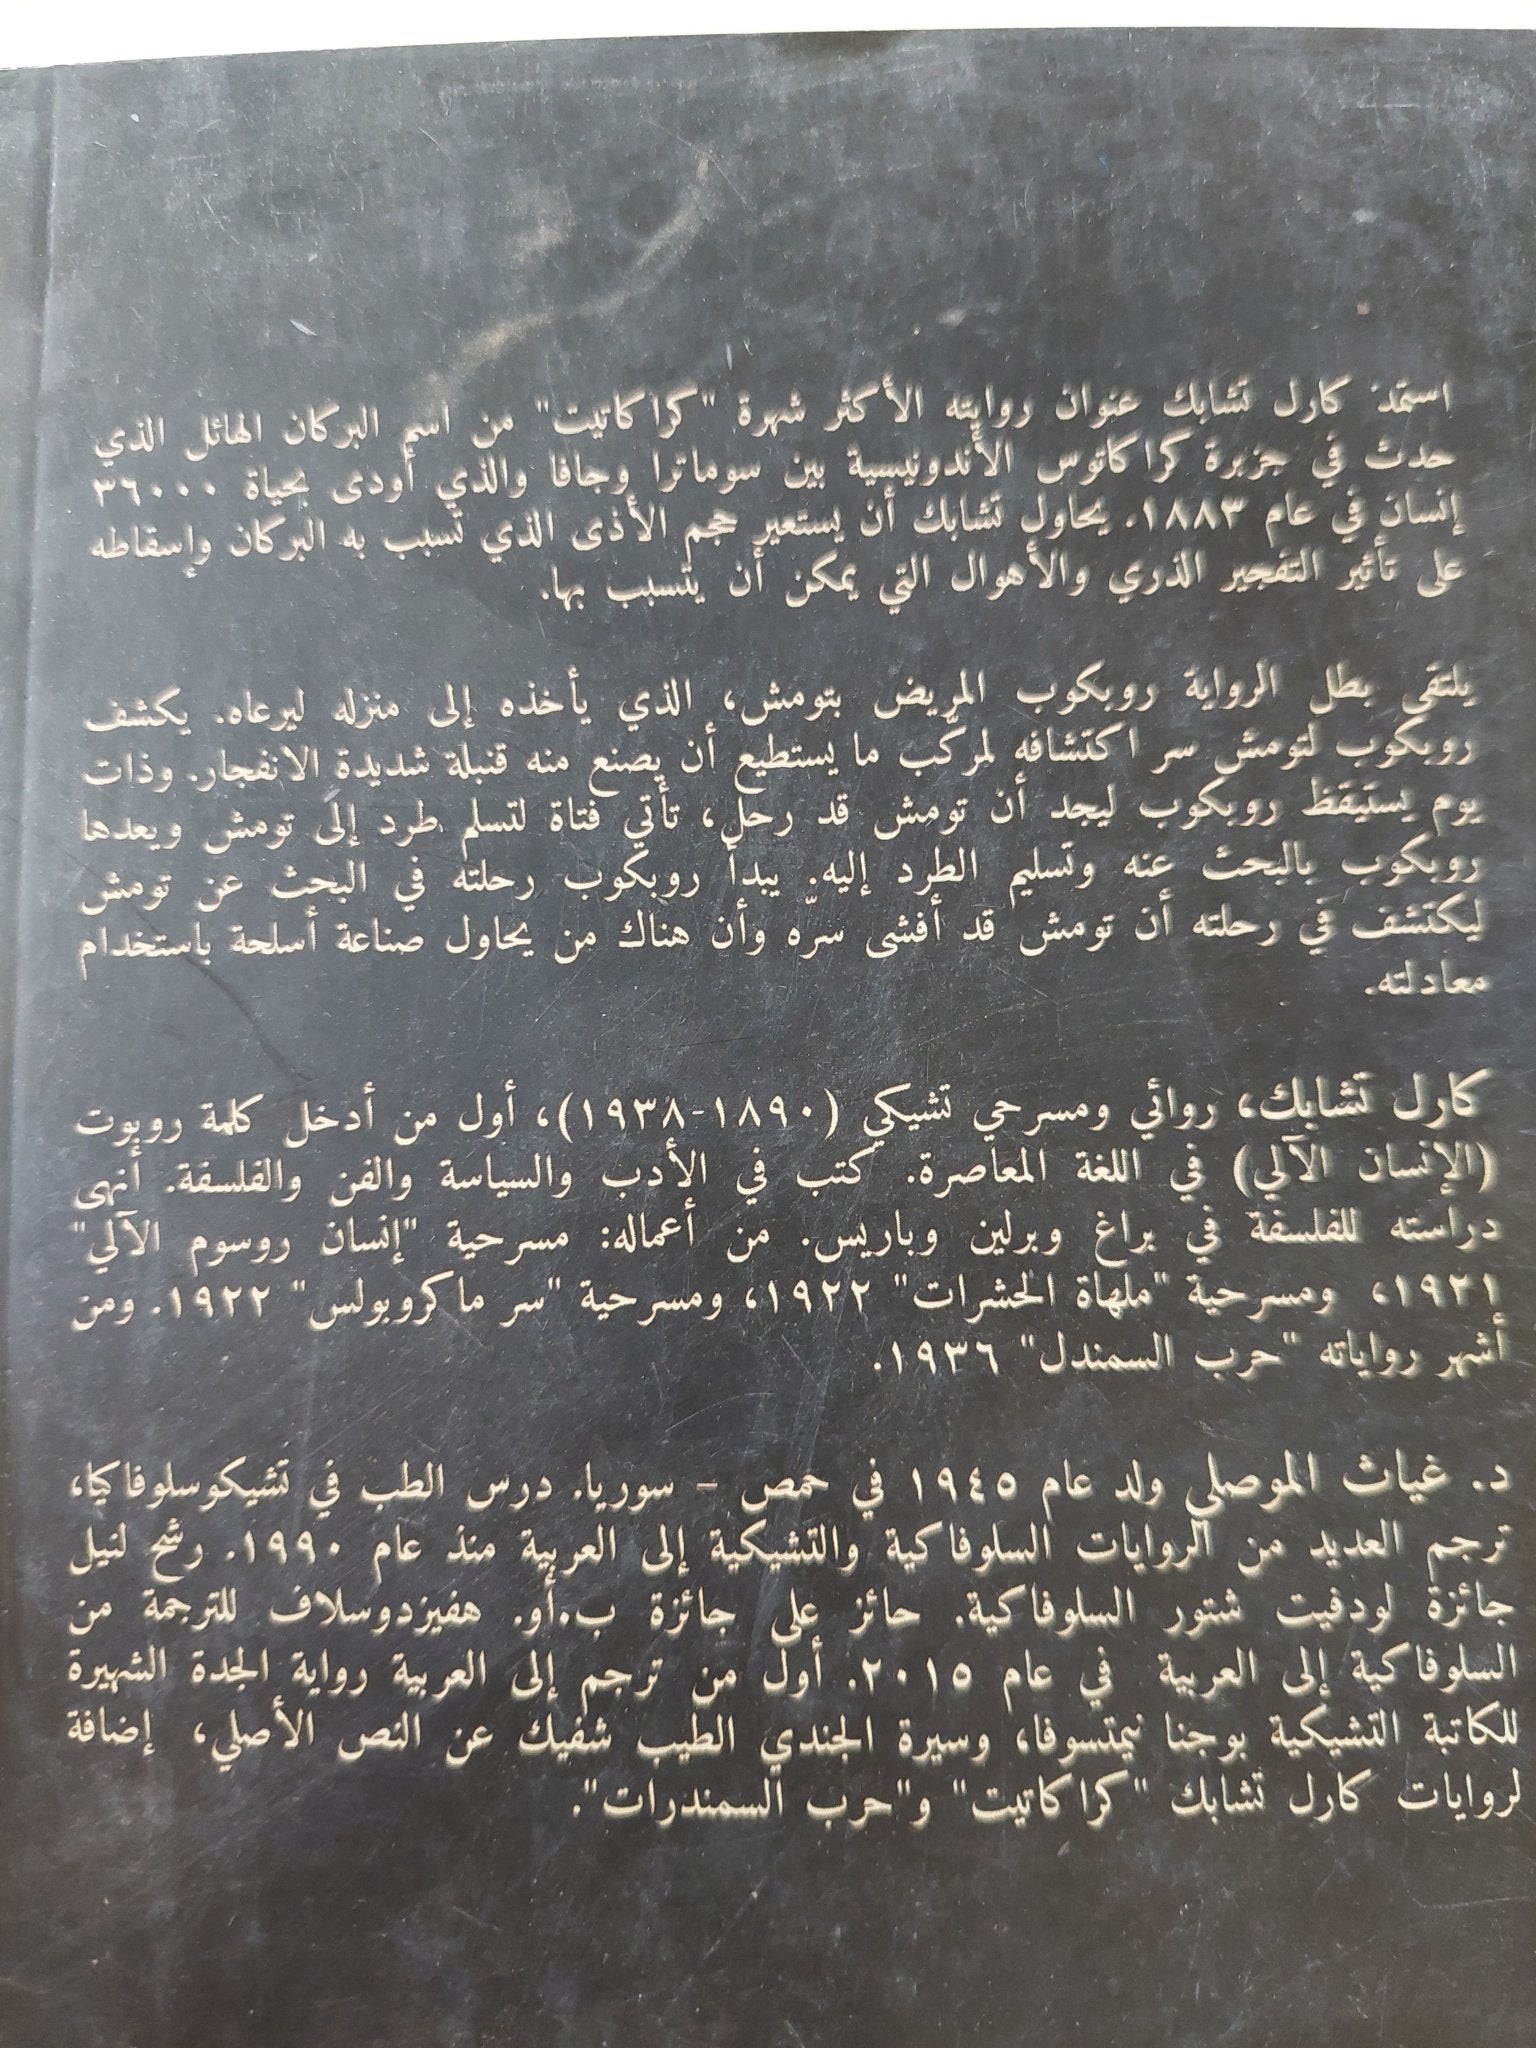 استمد كارل تشابك عنوان روايته الأكثر شهرة "كراكاتيت" من اسم البركان الهائل الذي
حدث في جزيرة كراكاتوس الأندونيسية بين سوماترا وجافا والذي أودى بحياة ٣٦٠٠٠
إنسان في عام ١٨٨٣. يحاول تشابك أن يستعير حجم الأذى الذي تسبب به البركان وإسقاطه
على تأثير التفجير الذري والأهوال التي يمكن أن يتسبب بها.
يلتقي بطل الرواية روبكوب المريض بتومش، الذي يأخذه إلى منزله ليرعاه. يكشف
روبكوب لتومش سر اكتشافه لمركّب ما يستطيع أن يصنع منه قنبلة شديدة الانفجار. وذات
يوم يستيقظ روبكوب ليجد أن تومش قد رحل، تأتي فتاة لتسلم طرد إلى تومش ويعدها
روبكوب بالبحث عنه وتسليم الطرد إليه. يبدأ روبكوب رحلته في البحث عن تومش
ليكتشف في رحلته أن تومش قد أفشى سرّه وأن هناك من يحاول صناعة أسلحة باستخدام
معادلته.
كارل تشابك، روائي ومسرحي تشيكي (١٨٩٠-١٩٣٨)، أول من أدخل كلمة روبوت
(الإنسان الآلي) في اللغة المعاصرة. كتب في الأدب والسياسة والفن والفلسفة. أنهى
دراسته للفلسفة في براغ وبرلين وباريس. من أعماله: مسرحية "إنسان روسوم الآلي"
١٩٢١، ومسرحية "ملهاة الحشرات" ١٩٢٢، ومسرحية "سر ماكروبولس" ١٩٢٢. ومن
أشهر رواياته "حرب السمندل" ١٩٣٦.
د. غياث الموصلي ولد عام ١٩٤٥ في حمص - سوريا. درس الطب في تشيكوسلوفاكيا،
ترجم العديد من الروايات السلوفاكية والتشيكية إلى العربية منذ عام ١٩٩٠. رشح لنيل
جائزة لودفيت شتور السلوفاكية. حائز على جائزة ب.أو. هفيزدوسلاف للترجمة من
السلوفاكية إلى العربية في عام ٢٠١٥. أول من ترجم إلى العربية رواية الجدة الشهيرة
للكاتبة التشيكية بوجنا نيمتسوفا، وسيرة الجندي الطيب شفيك عن النص الأصلي، إضافة
لروايات كارل تشابك "كراكاتيت" و"حرب السمندرات".